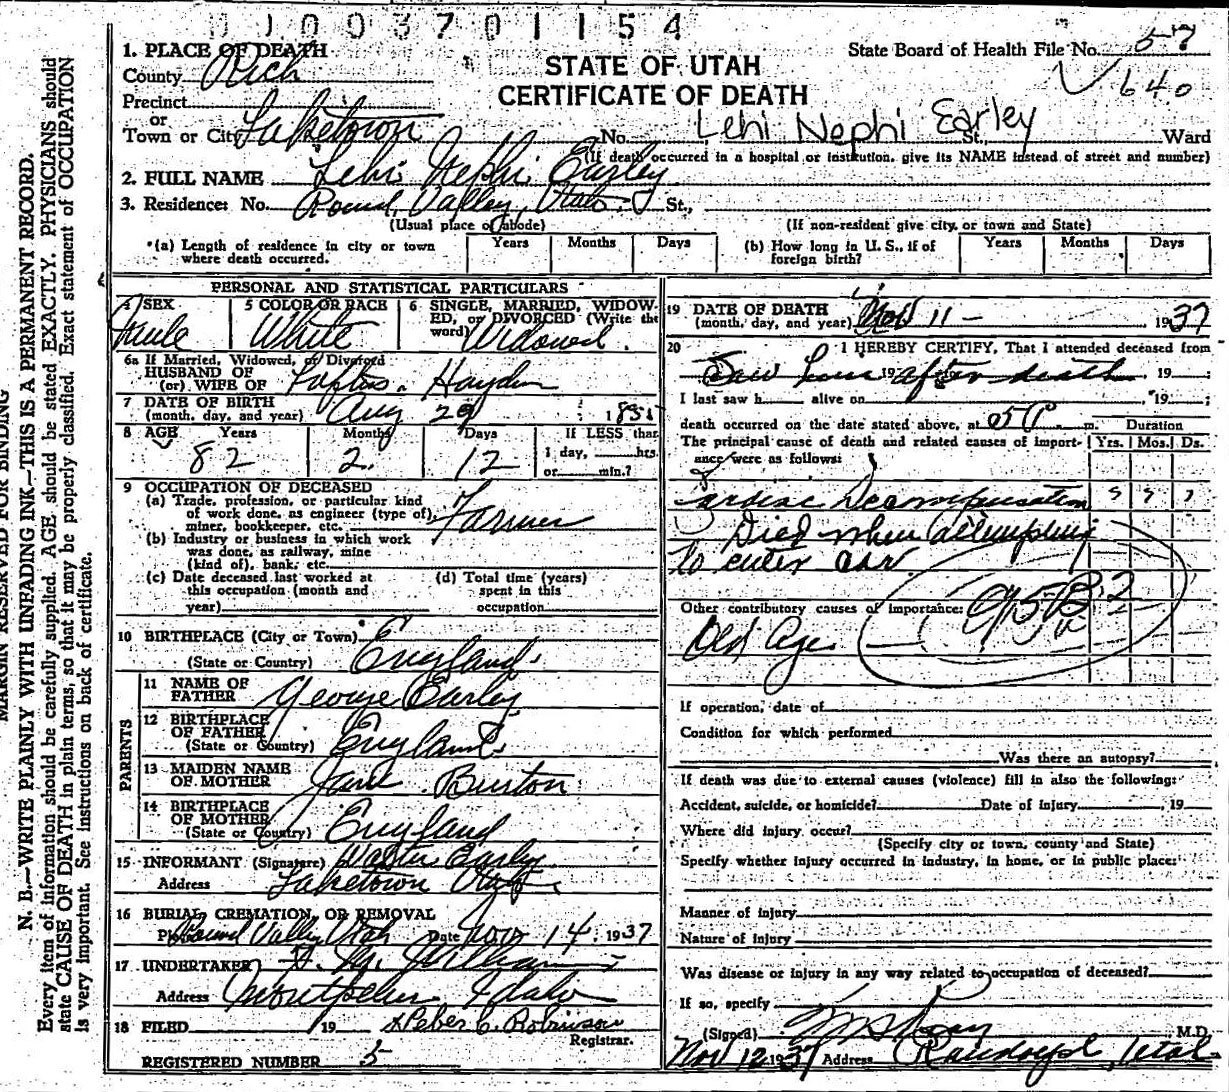 0 1 0 9 3 7 0 1 1 5 4
1. PLACE OF DEATH
County Rich
Precinct
or
Town or City Laketown
STATE OF UTAH
CERTIFICATE OF DEATH
State Board of Health File No. 57
640
No. Lehi Nephi Earley St., Ward
(If death occurred in a hospital or institution, give its NAME instead of street and number)
2. FULL NAME Lehi Nephi Earley
3. Residence: No. Round Valley, Utah St.,
(Usual place of abode)
(If non-resident give city, or town and State)
(a) Length of residence in city or town where death occurred.
Years Months Days
(b) How long in U. S., if of foreign birth?
Years Months Days
PERSONAL AND STATISTICAL PARTICULARS
4 SEX
male
5 COLOR OR RACE
White
6 SINGLE, MARRIED, WIDOWED, or DIVORCED (Write the word)
Widowed.
6a If Married, Widowed, or Divorced
HUSBAND OF
(or) WIFE OF Hayden
7 DATE OF BIRTH
(month, day, and year) Aug 29 1855
8 AGE Years Months Days
82 2 12
If LESS than
1 day, hrs.
or min.?
9 OCCUPATION OF DECEASED
(a) Trade, profession, or particular kind
of work done, as engineer (type of),
miner, bookkeeper, etc. Farmer
(b) Industry or business in which work
was done, as railway, mine
(kind of), bank, etc.
(c) Date deceased last worked at
this occupation (month and
year)
(d) Total time (years)
spent in this
occupation
10 BIRTHPLACE (City or Town)
(State or Country) England
11 NAME OF
FATHER George Earley
PARENTS
12 BIRTHPLACE
OF FATHER
(State or Country) England
13 MAIDEN NAME
OF MOTHER Jane Burton
14 BIRTHPLACE
OF MOTHER
(State or Country) England
15 INFORMANT (Signature) Walter Earley
Address Laketown Utah
16 BURIAL, CREMATION, OR REMOVAL
Round Valley Utah Date Nov 14, 1937
17 UNDERTAKER Williams
Address Montpelier, Idaho
18 FILED 19 Heber C. Robinson
Registrar.
REGISTERED NUMBER 5
19 DATE OF DEATH
(month, day, and year) Nov 11 - 1937
20 I HEREBY CERTIFY, That I attended deceased from
Saw him 19 after death, 19
I last saw h alive on , 19 ;
death occurred on the date stated above, at m. Duration
The principal cause of death and related causes of importance were as follows:
Yrs. Mos. Ds.
Cardiac Decompensation ? ? ?
Died when attempting
to enter car
Other contributory causes of importance: 95B 2
Old Age
If operation, date of
Condition for which performed
Was there an autopsy?
If death was due to external causes (violence) fill in also the following:
Accident, suicide, or homicide? Date of injury , 19
Where did injury occur?
(Specify city or town, county and State)
Specify whether injury occurred in industry, in home, or in public place:
Manner of injury
Nature of injury
Was disease or injury in any way related to occupation of deceased?
If so, specify
(Signed) M.D.
Nov 12 1937 Address Randolph, Utah
MARGIN RESERVED FOR BINDING
N. B.—WRITE PLAINLY WITH UNFADING INK—THIS IS A PERMANENT RECORD.
Every item of information should be carefully supplied. AGE should be stated EXACTLY. PHYSICIANS should
state CAUSE OF DEATH in plain terms, so that it may be properly classified. Exact statement of OCCUPATION
is very important. See instructions on back of certificate.